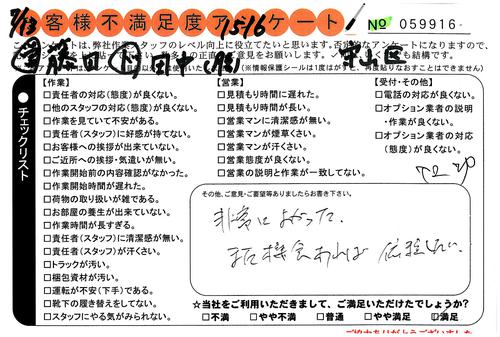 2/13 お客様不満足度アンケート! 1516 No 059916
このアンケートは、弊社作業スタッフのレベル向上に役立てたいと思います。否定的なアンケートになりますので、
守山区
●チェックリスト
【作業】
□責任者の対応(態度)が良くない。
□他のスタッフの対応(態度)が良くない。
□作業を見ていて不安がある。
□責任者(スタッフ)に好感が持てない。
□お客様への挨拶が出来ていない。
□ご近所への挨拶・気遣いが無い。
□作業開始前の内容確認がなかった。
□作業開始時間が遅れた。
□荷物の取り扱いが雑である。
□お部屋の養生が出来ていない。
□作業時間が長すぎる。
□責任者(スタッフ)に清潔感が無い。
□責任者(スタッフ)が汗くさい。
□トラックが汚い。
□梱包資材が汚い。
□運転が不安(下手)である。
□靴下の履き替えをしてない。
□スタッフにやる気がみられない。
【営業】
□見積もり時間に遅れた。
□見積もり時間が長い。
□営業マンに清潔感が無い。
□営業マンが煙草くさい。
□営業マンが汗くさい。
□営業態度が良くない。
□営業の説明と作業が一致してない。
【受付・その他】
□電話の対応が良くない。
□オプション業者の説明
・作業が良くない。
□オプション業者の対応
(態度)が良くない。
その他、ご意見・ご要望等ありましたらお書き下さい。
非常によかった。
また機会あれば依頼したい。
☆当社をご利用いただきまして、ご満足いただけたでしょうか?
□不満 □やや不満 □普通 □やや満足 □満足
ご協力ありがとうございました